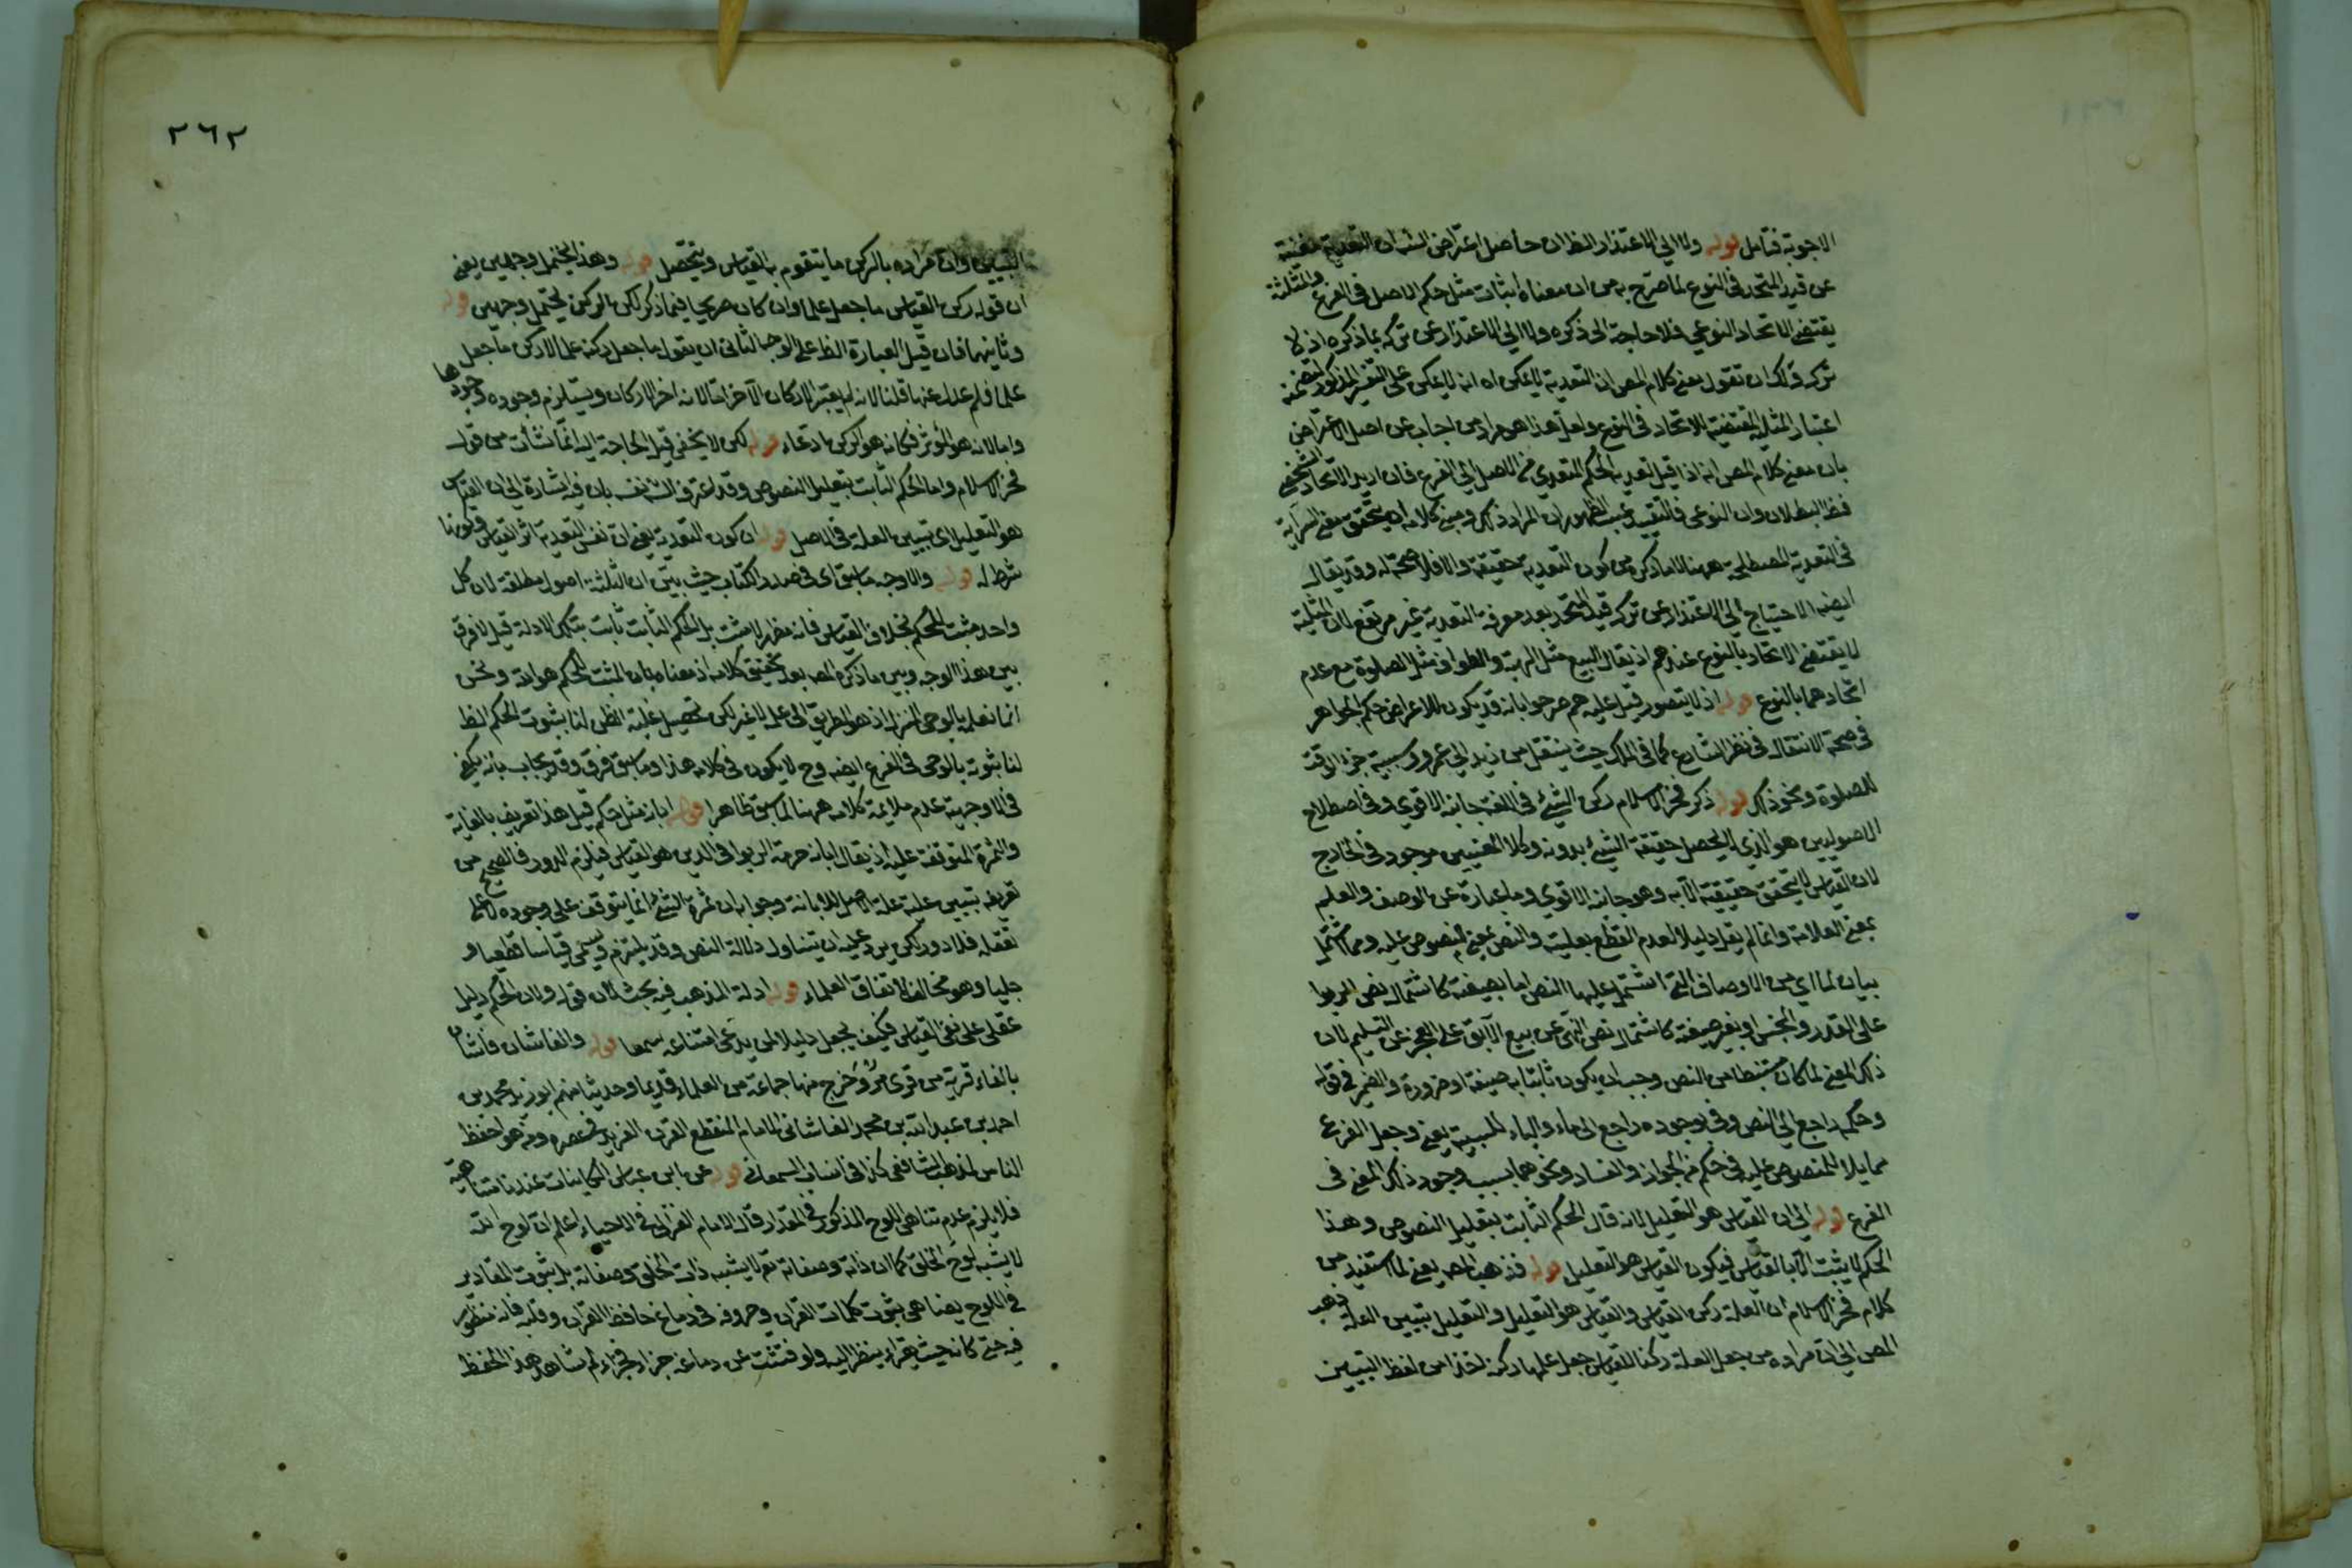 الاجوبة فتامل قوله ولا الي الاعتذار الظ ان حاصل اعتراض الشه ان التعدية مغنية
عن قيد المتحد في النوع لما صرح به من ان معناه اثبات مثل حكم الاصل في الفرع والمثلية
يقتضي الاتحاد النوعي فلا حاجة الى ذكره ولا الي الاعتذار عن تركه بما ذكره اذ لا
ترك ولك ان تقول معنى كلام المص ان التعدية لا يمكن اه انه لا يمكن على التفسير المذكور لتضمنه
اعتبار المثلية المقتضية الاتحاد في النوع ولعل هذا هو مراد من اجاب عن اصل الاعتراض
بان معنى كلام المص انه اذا قيل تعدية الحكم المتعدي من الاصل الي الفرع فان اريد الاتحاد الشخصي
فظ البطلان وان النوعي فالتقييد عبث لظهور ان المراد ذلك ومبنى كلامه ان يتحقق معنى السراية
في التعدية المصطلحة ههنا لما ذكره من كون التعدية حقيقة والا فلا صحة له وقد يقال
ايضا الاحتياج الي الاعتذار عن ترك قيد المتحد بعد معرفة التعدية غير مرتفع لان المثلية
لا يقتضي الاتحاد بالنوع عندهم اذ يقال البيع مثل الهبة والطواف مثل الصلوة مع عدم
اتحادهما بالنوع قوله اذ لا يتصور قيل عليه هم صرحوا بانه قد يكون للاعراض حكم الجواهر
في صحة الانتقال في نظر الشارع كما في الملك حيث ينتقل من زيد الي عمرو وسببية جزء الوقت
للصلوة ونحو ذلك قوله ذكر فخر الاسلام ركن الشيء في اللغة جانبه الاقوي وفي اصطلاح
الاصوليين هو الذي لا يحصل حقيقة الشيء بدونه وكلا المعنيين موجود في الخارج
لان القياس لا يتحقق حقيقته الا به وهو جانبه الاقوي وما عبارة عن الوصف والعلم
بمعنى العلامة وانما لم يقل دليلا لعدم القطع بعليته والنص بمعنى المنصوص عليه ومما اشتمل
بيان لما اي من الاوصاف التي اشتمل عليها النص اما بصيغته كاشتمال نص الربوا
على القدر والجنس او بغير صيغته كاشتمال نص النهي عن بيع الآبق على العجز عن التسليم لان
ذلك المعنى لما كان مستنبطا من النص وجب ان يكون ثابتا به صيغة او ضرورة والضمير في قوله
وحكمه راجع الي النص وفي بوجوده راجع الى ما والباء للسببية يعني وجعل الفرع
مماثلا للمنصوص عليه في حكمه من الجواز والفساد ونحوهما بسبب وجود ذلك المعنى في
الفرع قوله الي ان القياس هو التعليل لانه قال الحكم الثابت بتعليل النصوص وهذا
الحكم لا يثبت الا بالقياس فيكون القياس هو التعليل قوله فذهب المص يعني لما استفيد من
كلام فخر الاسلام ان العلة ركن القياس والقياس هو التعليل والتعليل تبيين العلة ذهب
المص الي ان مراده من جعل العلة ركنا للقياس جعل علمها ركنه اخذا من لفظ التبيين
٢٦٢
التبيين وان مراده بالركن ما يتقوم به القياس ويتحصل قوله وهذا يحتمل وجهين يعني
ان قوله ركن القياس ما جعل علما وان كان صريحا فيما ذكر لكن الركن يحتمل وجهين قوله
وثانيهما فان قيل العبارة الظ على الوجه الثاني ان يقول ما جعل ركنه علما لا ركن ما جعل
علما فلم عدل عنها قلنا لانه لم يعتبر الاركان الآخر اما لانه اخر الاركان ويستلزم وجوده وجودها
واما لانه هو المؤثر فكانه هو الركن ادعاء قوله لكن لا يخفى قيل الحاجة اليه انما نشأت من قول
فخر الاسلام واما الحكم الثابت بتعليل النصوص وقد اعترف الش نفسه بان فيه اشارة الي ان القياس
هو التعليل اي تبيين العلة في الاصل قوله ان كون التعدية يعني ان نفس التعدية اثر القياس وكونها
شرط له قوله والاوجه ما سبق اي في صدر الكتاب حيث بين ان الثلثة اصول مطلقة لان كل
واحد مثبت للحكم بخلاف القياس فانه مظهر لا مثبت بل الحكم الثابت ثابت بتلك الادلة قيل لا فرق
بين هذا الوجه وبين ما ذكره المص بعد تحقيق كلامه اذ معناه بان المثبت للحكم هو الله ونحن
انما نعلمه بالوحي المنزل اذ هو الطريق الى علمه لا غير لكن تحصيل غلبة الظن لنا بثبوت الحكم الظ
لنا ثبوته بالوحي في الفرع ايضه وح لا يكون في كلامه هذا وما سبق فرق وقد يجاب بانه يكفي
في الاوجهية عدم ملايمة كلامه ههنا لما سبق ظاهرا قوله ابانة مثل حكم قيل هذا تعريف بالغاية
والثمرة المتوقفة عليه اذ يقال ابانة حرمة الربوا في الدين هو القياس فيلزم الدور فالصحيح من
تعريفه تبيين علية علة الاصل للابانة وجوابه ان ثمرة الشيء انما يتوقف على وجوده لا على
تعقله فلا دور لكن يرد عليه ان يتناول دلالة النص وقد يلتزم ويسمى قياسا قطعيا و
جليا وهو مخالف لاتفاق العلماء قوله ادلة المذهب فيه بحث لان قوله ولان الحكم دليل
عقلي على نفي القياس فكيف يجعل دليلا لمن يدعي امتناعه سمعا قوله والفاشان فاشان
بالفاء قرية من قرى مرو وخرج منها جماعة من العلماء قديما وحديثا منهم ابو زيد محمد بن
احمد بن عبد الله بن محمد الفاشاني الامام المنقطع القرن الفريد في عصره ومنه هو احفظ
الناس لمذهب الشافعي كذا في انساب السمعاني قوله عن ابن عباس الكاينات عندنا متناهية
فلا يلزم عدم تناهي اللوح المذكور في المقدار قال الامام الغزالي في الاحياء اعلم ان لوح الله
لا يشبه لوح الخلق كما ان ذاته وصفاته تع لا يشبه ذات الخلق وصفاته بل ثبوت المقادير
في اللوح يضاهي ثبوت كلمات القران وحروفه في دماغ حافظ القران وقلبه فانه منظور
فيه حتى كانه حيث يقراء ينظر اليه ولو فتشت عن دماغه جزاء فجزاء لم تشاهد هذا الحفظ